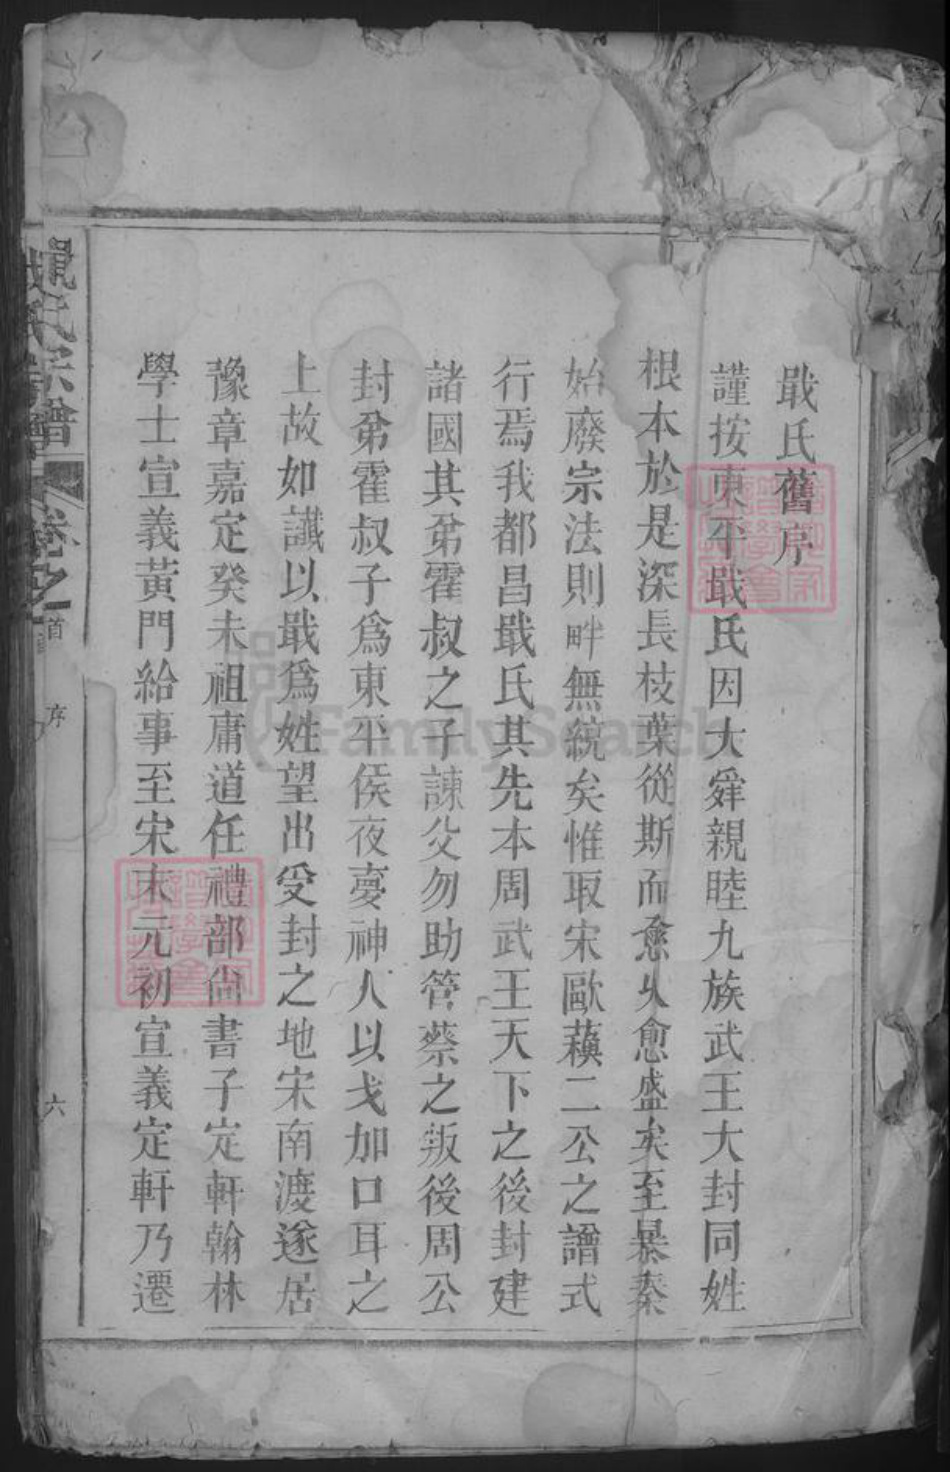 戢氏舊序
謹按東平戢氏因大舜親睦九族武王大封同姓
根本於是深長枝葉從斯而愈乆愈盛矣至暴秦
始廢宗法則畔無統矣惟取宋歐蘓二公之譜式
行焉我都昌戢氏其先本周武王天下之後封建
諸國其弟霍叔之子諫父勿助管蔡之叛後周公
封弟霍叔子爲東平侯夜夢神人以戈加口耳之
上故如讖以戢爲姓望出受封之地宋南渡遂居
豫章嘉定癸未祖庸道任禮部尙書子定軒翰林
學士宣義黃門給事至宋末元初宣義定軒乃遷
氏宗譜
卷之首
序
六
FamilySearch